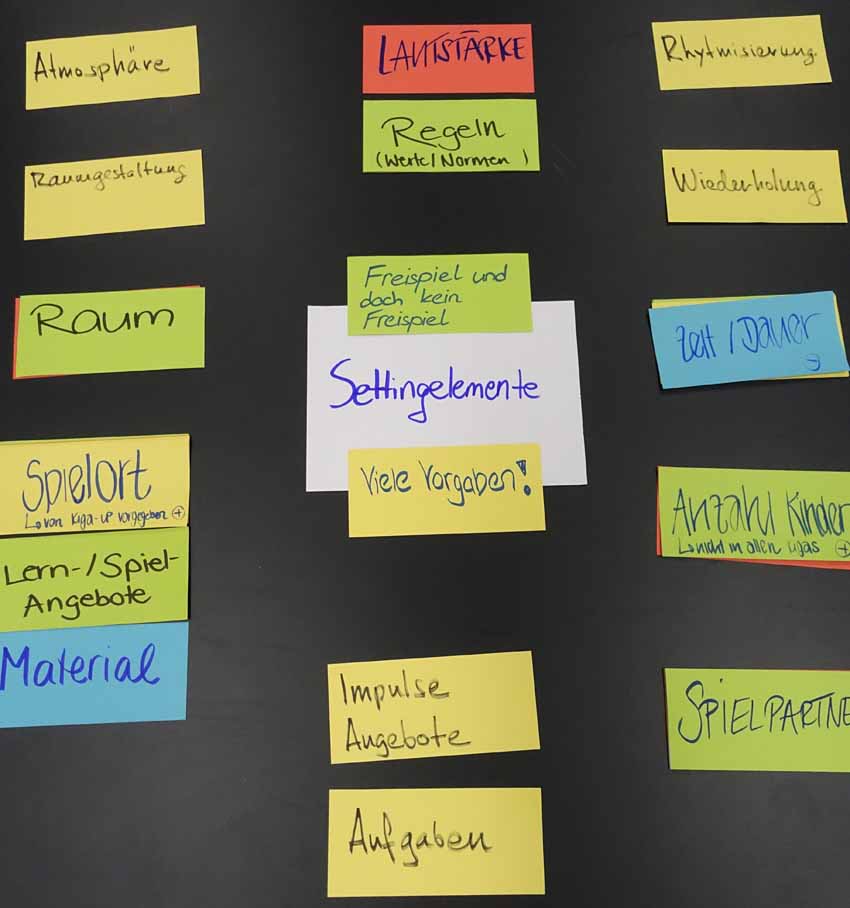 Atmosphäre
Raumgestaltung
Raum
Spielort
↳ von Kiga-LP vorgegeben ⊕
Lern-/Spiel-
Angebote
Material
LAUTSTÄRKE
Regeln
(Werte/Normen)
Freispiel und
doch kein
Freispiel
Settingelemente
Viele Vorgaben!
Impulse
Angebote
Aufgaben
Rhytmisierung
Wiederholung
Zeit / Dauer
Anzahl Kinder
↳ nicht in allen Kigas ⊕
SPIELPARTNE